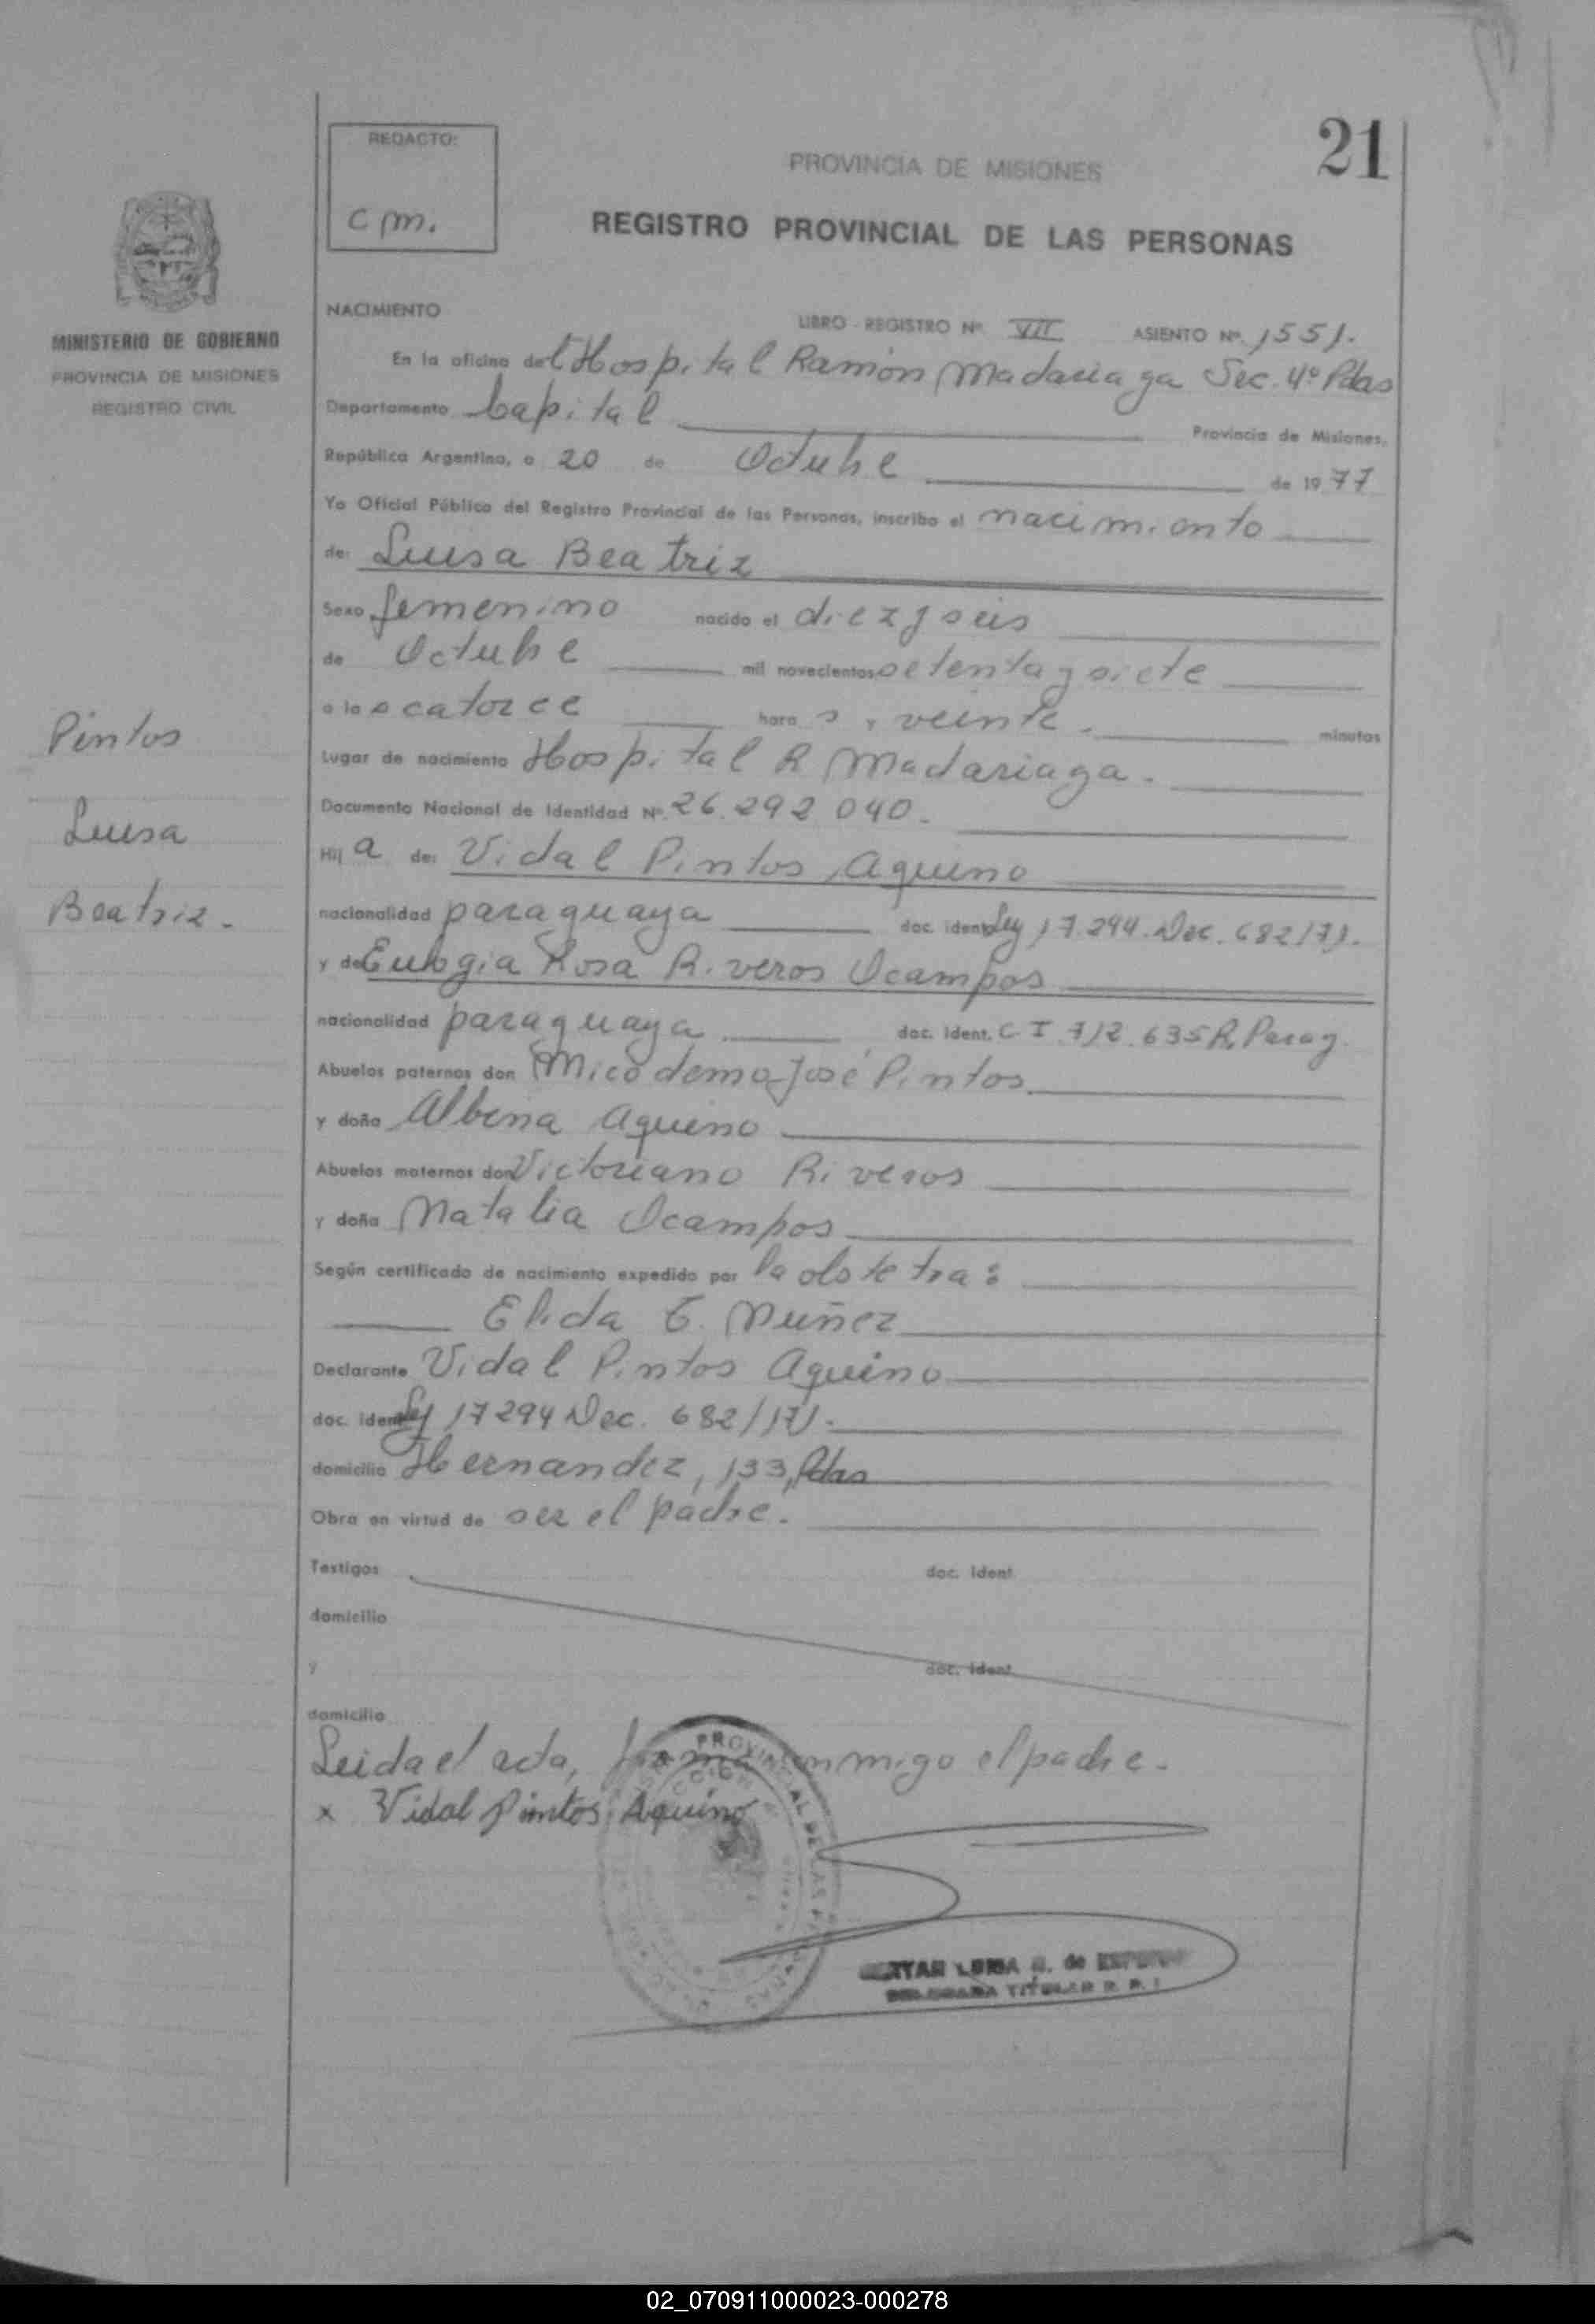 21
REDACTO:
C M.
PROVINCIA DE MISIONES
REGISTRO PROVINCIAL DE LAS PERSONAS
MINISTERIO DE GOBIERNO
PROVINCIA DE MISIONES
REGISTRO CIVIL
Pintos
Luisa
Beatriz.
NACIMIENTO
LIBRO - REGISTRO Nº VII ASIENTO Nº 1551.
En la oficina del Hospital Ramón Madariaga Sec. 4º Pdas
Departamento Capital Provincia de Misiones,
República Argentina, a 20 de Octubre de 1977
Yo Oficial Público del Registro Provincial de las Personas, inscribo el nacimiento
de: Luisa Beatriz
Sexo femenino nacido el diez y seis
de Octubre mil novecientos setenta y siete
a las catorce horas y veinte. minutos
Lugar de nacimiento Hospital R Madariaga.
Documento Nacional de Identidad Nº 26.292 040.
Hija de: Vidal Pintos Aquino
nacionalidad paraguaya doc. ident. Ley 17.294. Dec. 682/71.
y de Eulogia Rosa Riveros Ocampos
nacionalidad paraguaya doc. ident. C. I 712.635 R. Parag.
Abuelos paternos don Nicodemo José Pintos
y doña Albina Aquino
Abuelos maternos don Victoriano Riveros
y doña Natalia Ocampos
Según certificado de nacimiento expedido por la obstetra:
Elida E. Nuñez
Declarante Vidal Pintos Aquino
doc. ident. Ley 17294 Dec. 682/171.
domicilio Hernandez, 133, Pdas
Obra en virtud de ser el padre.
Testigos doc. ident.
domicilio
y doc. ident
domicilio
Leida el acta, firma conmigo el padre.
x Vidal Pintos Aquino
PROVINCIAL DE LAS PERSONAS
TITULAR R. P.
02_070911000023-000278